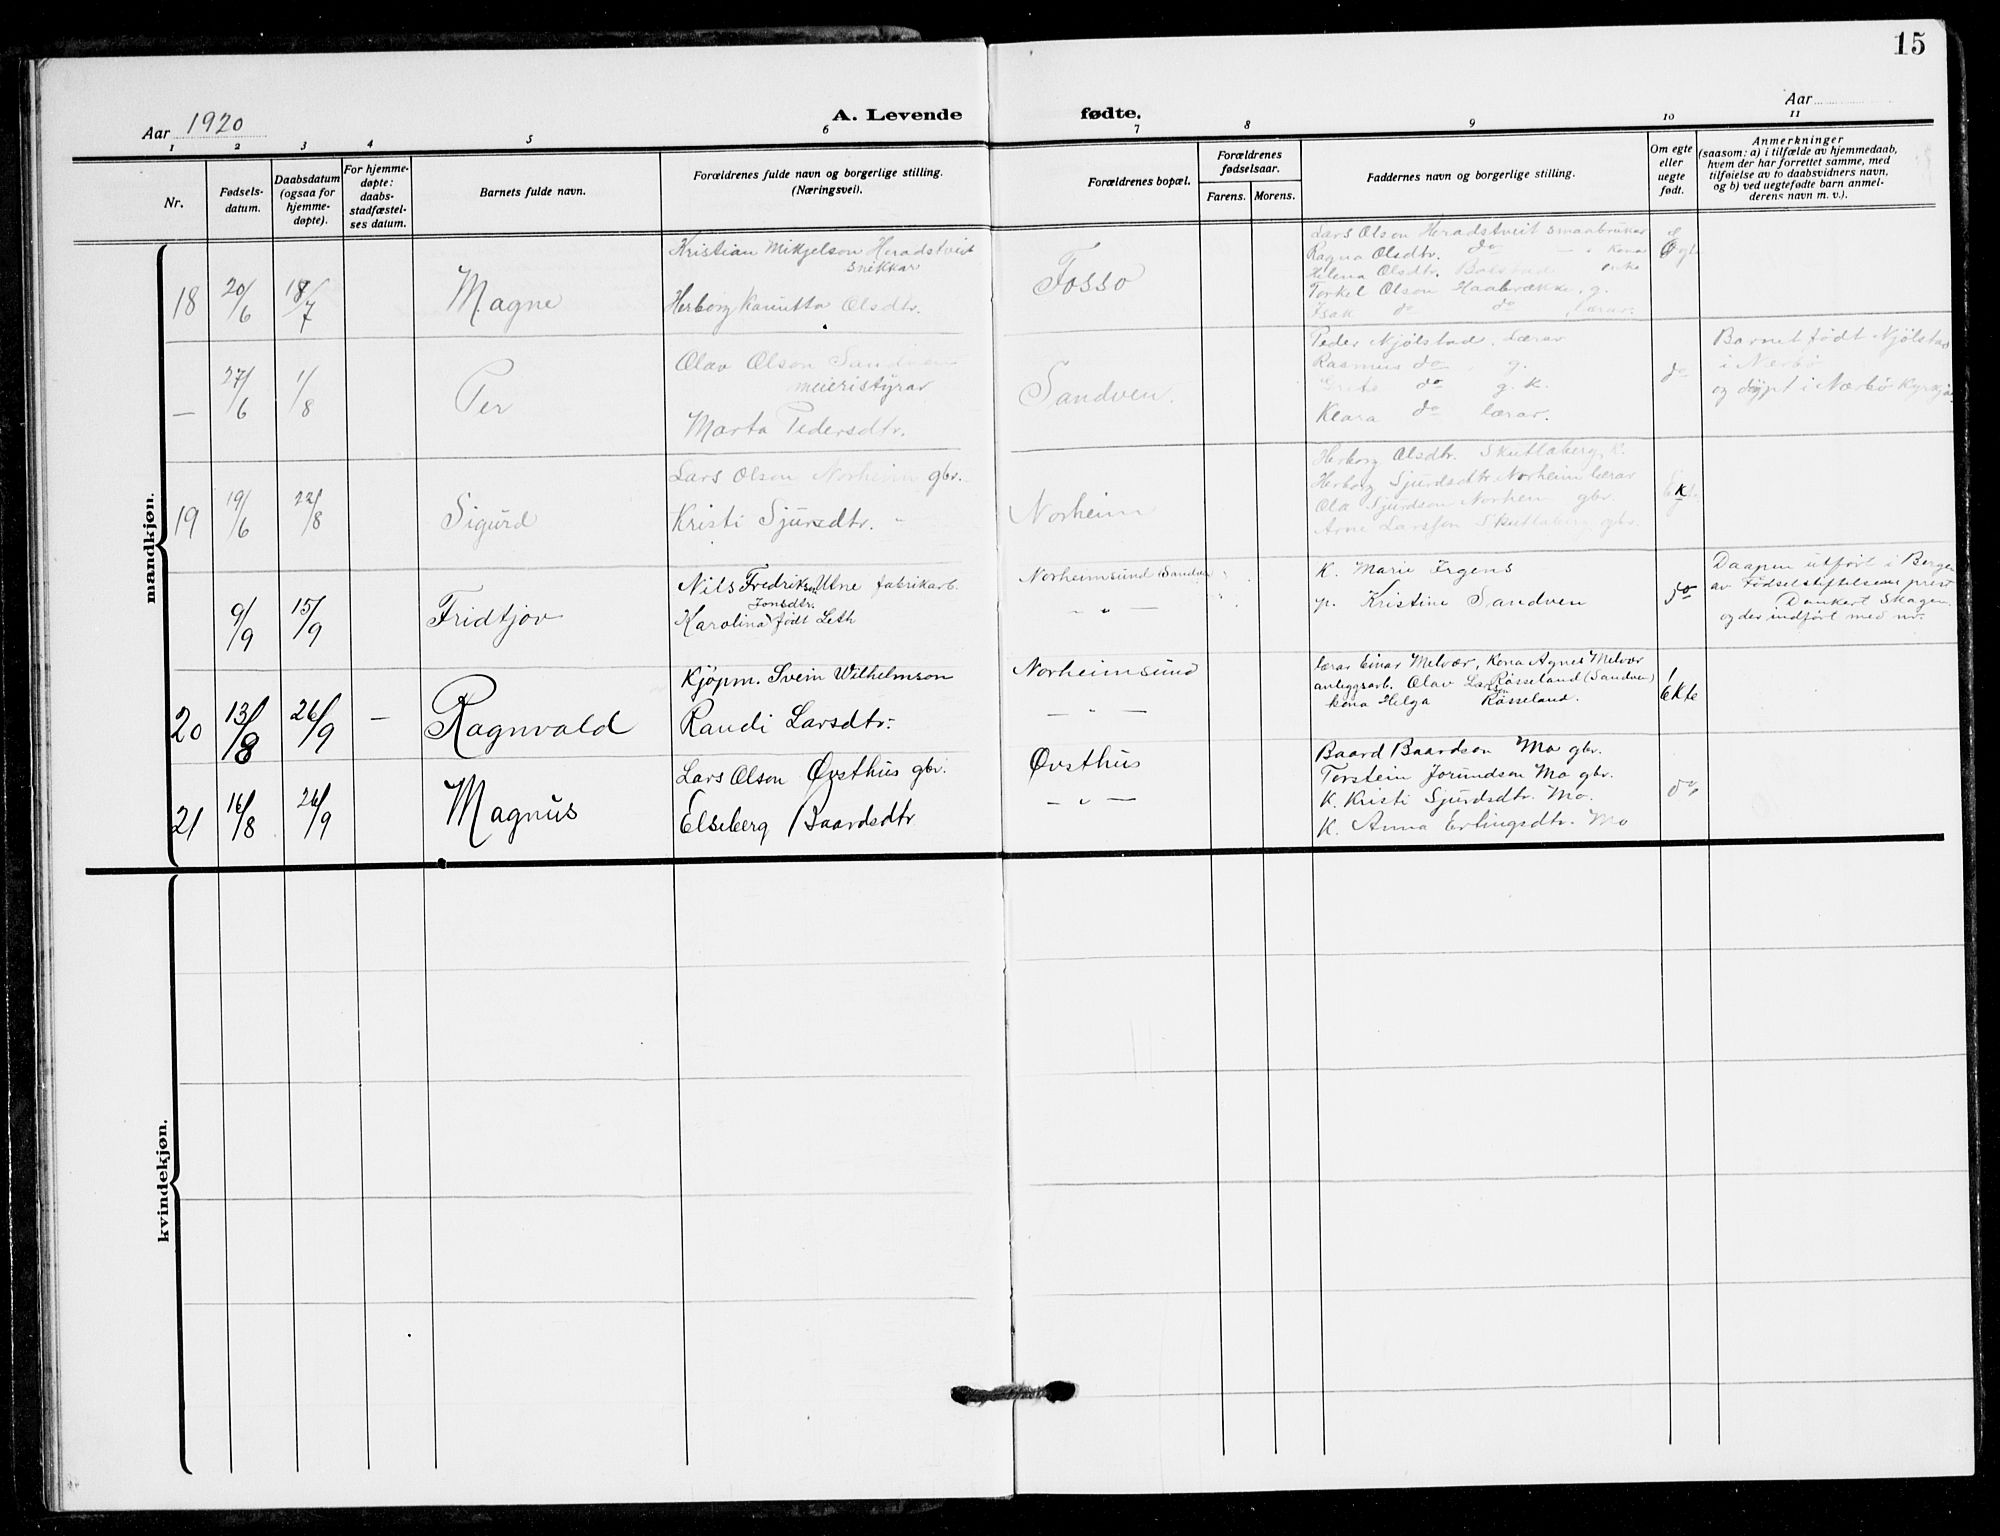 15
Aar 1920
A. Levende fødte.
Aar
1 2 3 4 5 6 7 8 9 10 11
Nr.
Fødsels-
datum.
Daabsdatum
(ogsaa for
hjemme-
døpte).
For hjemme-
døpte:
daabs-
stadfæstel-
ses datum.
Barnets fulde navn.
Forældrenes fulde navn og borgerlige stilling.
(Næringsvei).
Forældrenes bopæl.
Forældrenes
fødselsaar.
Farens. Morens.
Faddernes navn og borgerlige stilling.
Om egte
eller
uegte
født.
Anmerkninger
(saasom: a) i tilfælde av hjemmedaab,
hvem der har forrettet samme, med
tilføielse av to daabsvidners navn,
og b) ved uegtefødte barn anmel-
derens navn m. v.).
mandkjøn.
18 20/6 18/7 Magne
Kristian Mikjelson Heradstveit
snikkar
Herborg Kamitta Olsdtr.
Fosso
Lars Olson Heradstveit smaabrukar
Ragna Olsdtr. do — " kona
Helena Olsdtr. enke
Torkel Olson Haabrække, g.
Isak do do lærar.
— 27/6 1/8 Per
Olav Olson Sandven
meieristyrar
Marta Pedersdtr.
Sandven.
Peder Njølstad, Lærar
Rasmus do, g.
Grete do g. k.
Klara do lærar.
do
Barnet født Njølstad
i Nærbø
og døypt i Nærbø Kyrkja
19 19/6 22/8 Sigurd
Lars Olson Norheim gbr.
Kristi Sjursdtr. "
Norheim
Herborg Olsdtr. Skutlaberg, k.
Herborg Sjurdsdtr. Norheim lærar
Ola Sjurdson Norheim gbr.
Arne Larsson Skutlaberg gbr.
9/9 15/9 Fridtjov
Nils Fredriksn Utne fabrikarb.
Jonsdtr.
Karolina født Leth
Norheimsund (Sandven)
— " —
K. Marie Irgens
p. Kristine Sandven
do
Daapen utført i Bergen
av Fødselstiftelsens prest
Dankert Skagen.
og der indført med nr.
20 13/8 26/9 — Ragnvald
Kjøpm. Svein Wilhelmson
Randi Larsdtr.
Norheimsund
— " —
lærar Einar Melvær, kona Agnes Melvær
anleggsarb. Olav Larsen Røsseland (Sandven)
kona Helga Røsseland.
Ekte
21 16/8 26/9 Magnus
Lars Olson Øvsthus gbr.
Elseberg Baardsdtr
Øvsthus
— " —
Baard Baardson Mo gbr.
Torstein Jorundson Mo gbr.
K. Kristi Sjurdsdtr. Mo.
K. Anna Erlingsdtr. Mo
do
kvindekjøn.